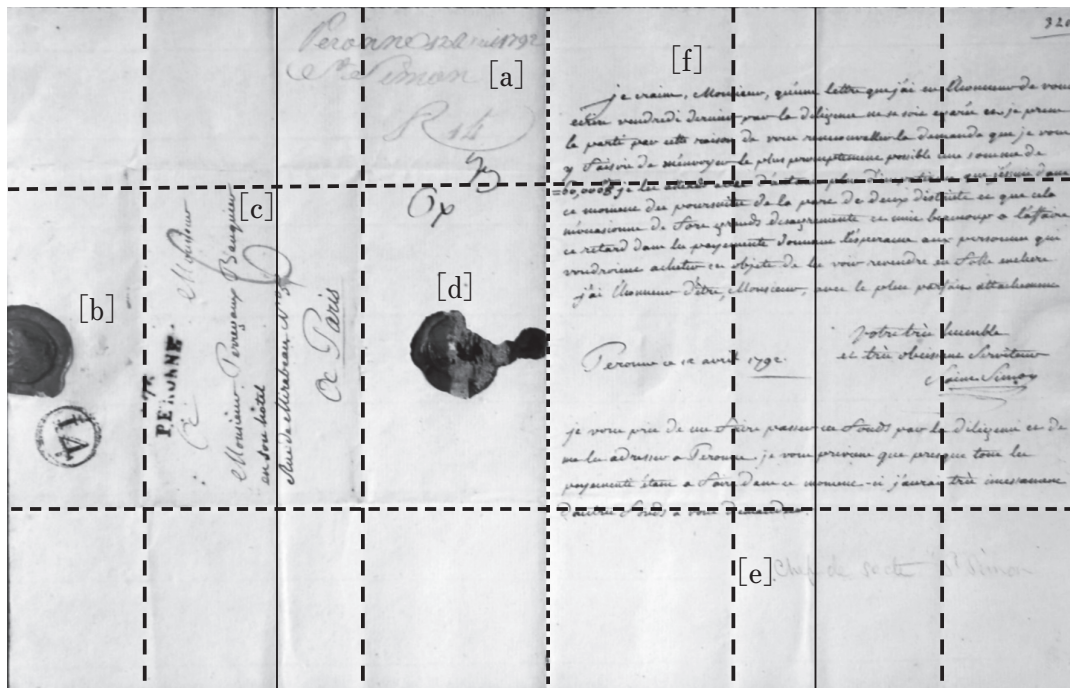 Peronne 12 avril 1792
St Simon
[a]
Rth
[b]
PERONNE
A Monsieur
Monsieur Perregaux Banquier
[c]
en son hôtel
Rue de Mirabeau N° 9
A Paris
[d]
320
[f]
je crains, Monsieur, qu'une lettre que j'ai eu l'honneur de vous
ecrire vendredi dernier par la diligence ne se soit egarée et je prens
le parti par cette raison de vous renouveller la demande que je vous
y faisois de m'envoyer le plus promptement possible une somme de
je les attends avec d'autant plus d'impatience que j'eprouve dans
ce moment des poursuites de la part de deux districts et que cela
m'occasionne de fort grands desagrements et nuit beaucoup a l'affaire
ce retard dans le payement donnant l'esperance aux personnes qui
voudroient acheter ces objets de les voir revendre en folle enchere
j'ai l'honneur d'être, Monsieur, avec le plus parfait attachement
votre très humble
et très obeissant Serviteur
Saint Simon
Peronne ce 12 avril 1792.
je vous prie de me faire passer ces fonds par la diligence et de
me les adresser a Peronne. je vous previens que presque tous les
payements étant a faire dans ce moment-ci j'aurai très incessamment
d'autres fonds a vous demander.
[e]
Chef de secte St Simon